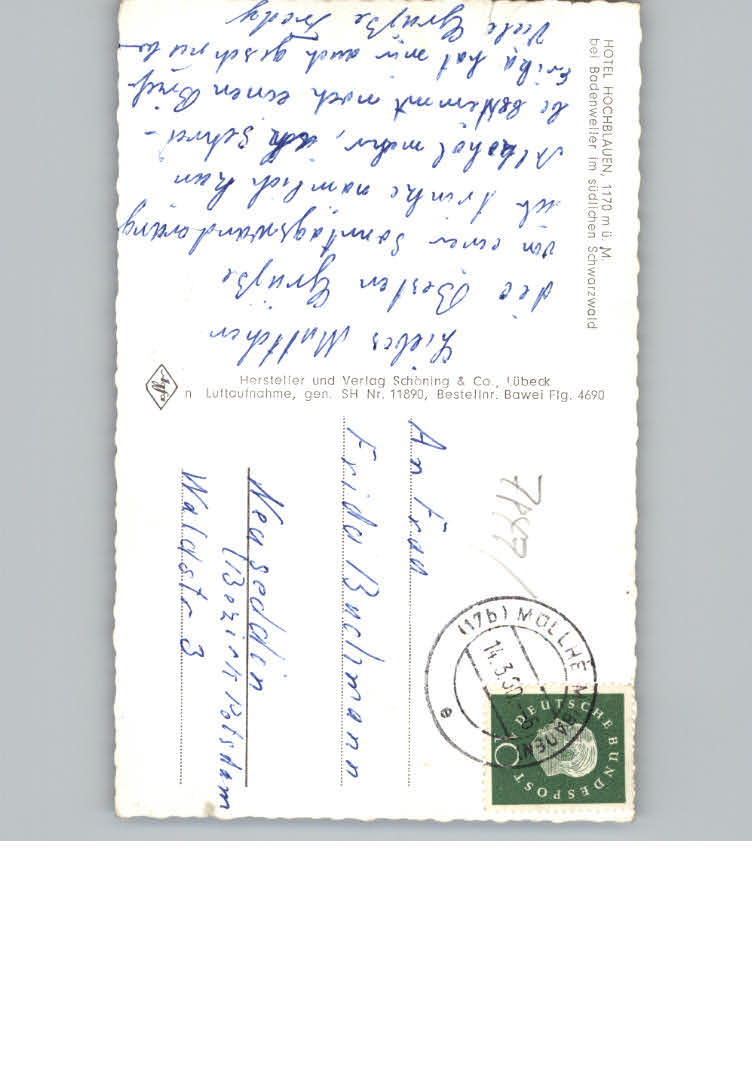 HOTEL HOCHBLAUEN, 1170 m ü. M.
bei Badenweiler im südlichen Schwarzwald
Liebes Muttchen
die Besten Grüße
von einer Sonntagswanderung
ich trinke nämlich kein
Alkohol mehr, Schrei-
be bestimmt noch einen Brief
Erika hat mir auch geschrieben
Viele Grüße Fredy
Hersteller und Verlag Schöning & Co., Lübeck
Luftaufnahme, gen. SH Nr. 11890, Bestellnr. Bawei Flg. 4690
Agfa
An Frau
Frida Buchmann
Neuseddin
(Bezirk Potsdam
Waldstr 3
(17b) MÜLLHEIM
BADEN
14.3.60
e
DEUTSCHE BUNDESPOST
10